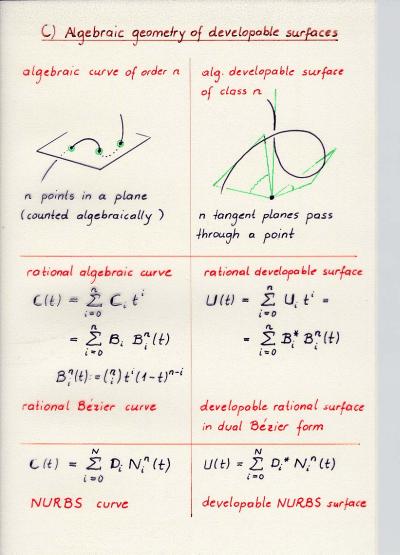 C) Algebraic geometry of developable surfaces
algebraic curve of order n
n points in a plane
(counted algebraically)
alg. developable surface
of class n
n tangent planes pass
through a point
rational algebraic curve
C(t) = ∑_{i=0}^{n} C_i t^i
= ∑_{i=0}^{n} B_i B_i^n(t)
B_i^n(t) := (n i) t^i (1-t)^{n-i}
rational Bézier curve
rational developable surface
U(t) = ∑_{i=0}^{n} U_i t^i =
= ∑_{i=0}^{n} B_i^* B_i^n(t)
developable rational surface
in dual Bézier form
C(t) = ∑_{i=0}^{N} D_i N_i^n(t)
NURBS curve
U(t) = ∑_{i=0}^{N} D_i^* N_i^n(t)
developable NURBS surface